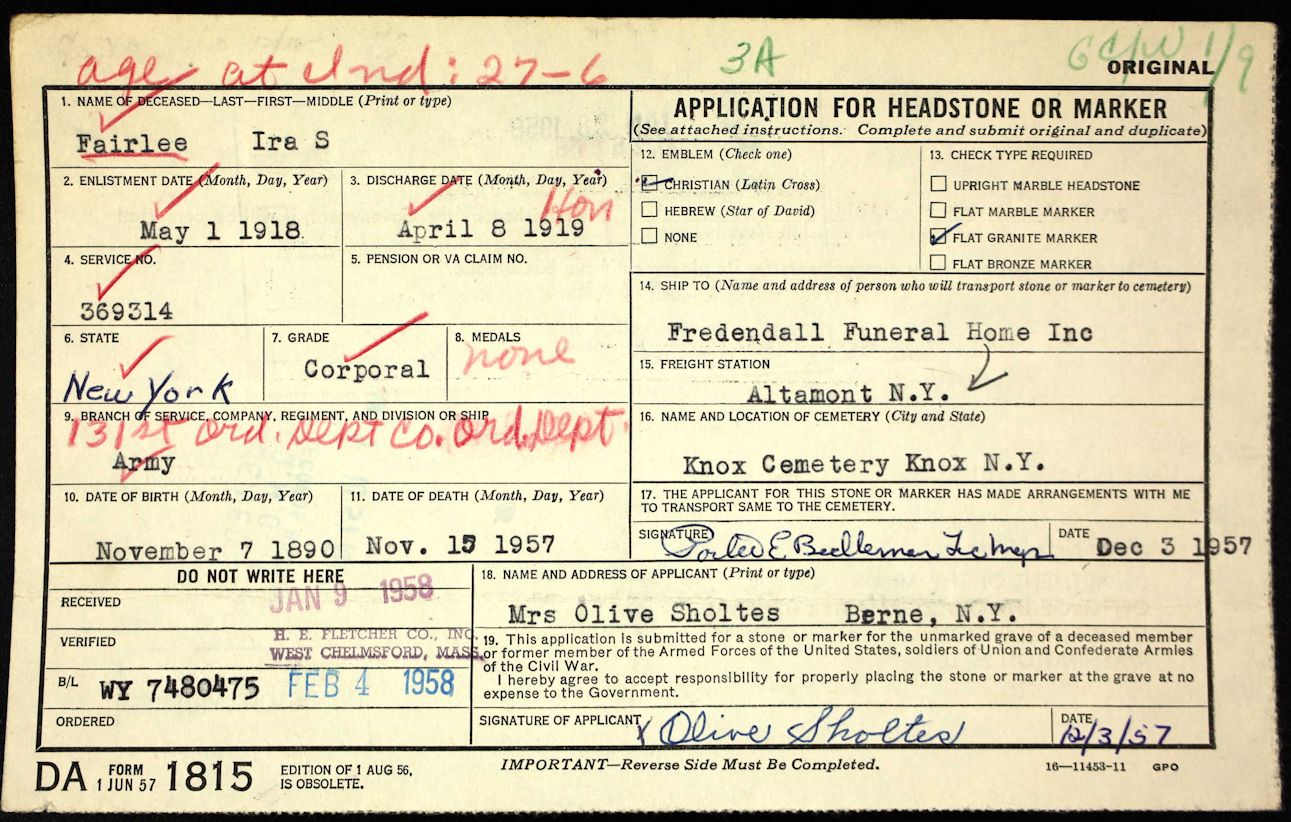 age at Ind: 27-6
3A
1/9
ORIGINAL
1. NAME OF DECEASED—LAST—FIRST—MIDDLE (Print or type)
Fairlee Ira S
2. ENLISTMENT DATE (Month, Day, Year)
May 1 1918
3. DISCHARGE DATE (Month, Day, Year)
Hon
April 8 1919
4. SERVICE NO.
369314
5. PENSION OR VA CLAIM NO.
6. STATE
New York
7. GRADE
Corporal
8. MEDALS
none
9. BRANCH OF SERVICE, COMPANY, REGIMENT, AND DIVISION OR SHIP
131st Ord. Dept Co. Ord. Dept.
Army
10. DATE OF BIRTH (Month, Day, Year)
November 7 1890
11. DATE OF DEATH (Month, Day, Year)
Nov. 15 1957
APPLICATION FOR HEADSTONE OR MARKER
(See attached instructions. Complete and submit original and duplicate)
12. EMBLEM (Check one)
CHRISTIAN (Latin Cross)
HEBREW (Star of David)
NONE
13. CHECK TYPE REQUIRED
UPRIGHT MARBLE HEADSTONE
FLAT MARBLE MARKER
FLAT GRANITE MARKER
FLAT BRONZE MARKER
14. SHIP TO (Name and address of person who will transport stone or marker to cemetery)
Fredendall Funeral Home Inc
15. FREIGHT STATION
Altamont N.Y.
16. NAME AND LOCATION OF CEMETERY (City and State)
Knox Cemetery Knox N.Y.
17. THE APPLICANT FOR THIS STONE OR MARKER HAS MADE ARRANGEMENTS WITH ME
TO TRANSPORT SAME TO THE CEMETERY.
SIGNATURE
DATE
Dec 3 1957
DO NOT WRITE HERE
RECEIVED
JAN 9 1958
VERIFIED
H. E. FLETCHER CO., INC.
WEST CHELMSFORD, MASS.
B/L WY 7480475
FEB 4 1958
ORDERED
18. NAME AND ADDRESS OF APPLICANT (Print or type)
Mrs Olive Sholtes Berne, N.Y.
19. This application is submitted for a stone or marker for the unmarked grave of a deceased member
or former member of the Armed Forces of the United States, soldiers of Union and Confederate Armies
of the Civil War.
I hereby agree to accept responsibility for properly placing the stone or marker at the grave at no
expense to the Government.
SIGNATURE OF APPLICANT
x Olive Sholtes
DATE
12/3/57
DA FORM 1 JUN 57 1815
EDITION OF 1 AUG 56,
IS OBSOLETE.
IMPORTANT—Reverse Side Must Be Completed.
16—11453-11 GPO